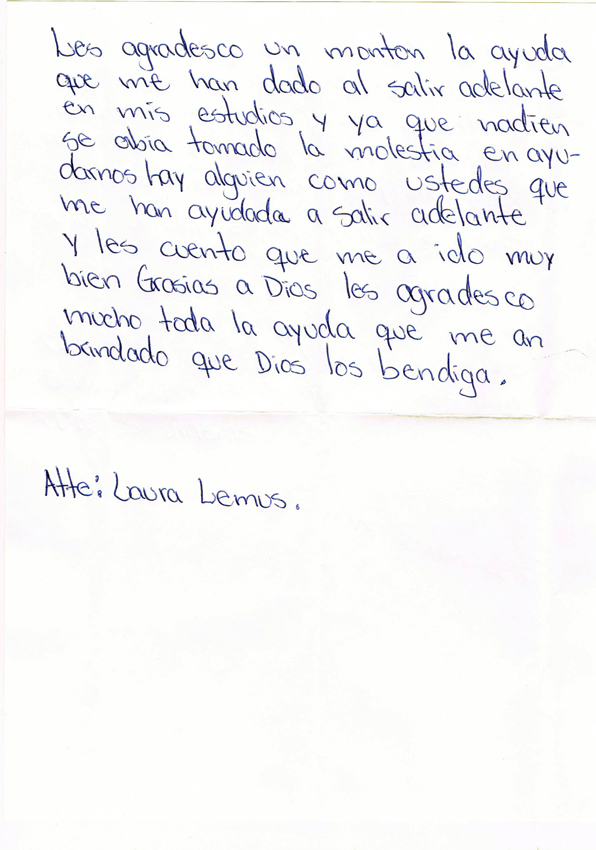 Les agradesco un monton la ayuda
que me han dado al salir adelante
en mis estudios y ya que nadien
se abia tomado la molestia en ayu-
darnos hay alguien como ustedes que
me han ayudada a salir adelante
y les cuento que me a ido muy
bien Grasias a Dios les agradesco
mucho toda la ayuda que me an
brindado que Dios los bendiga.
Atte: Laura Lemus.